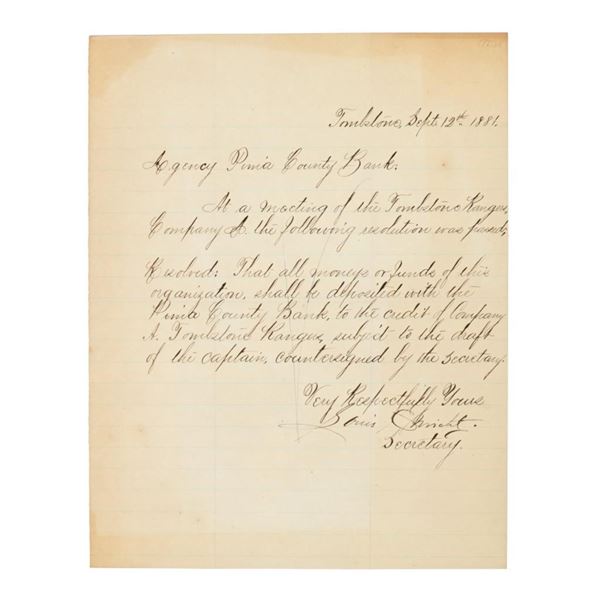 Tombstone, Sept. 12th. 1881.
Agency Pima County Bank:
At a meeting of the Tombstone Rangers,
Company A the following resolution was passed;
Resolved: That all moneys or funds of this
organization, shall be deposited with the
Pima County Bank, to the credit of Company
A. Tombstone Rangers, subj't to the draft
of the captain, countersigned by the Secretary.
Very Respectfully Yours
Louis
Secretary.